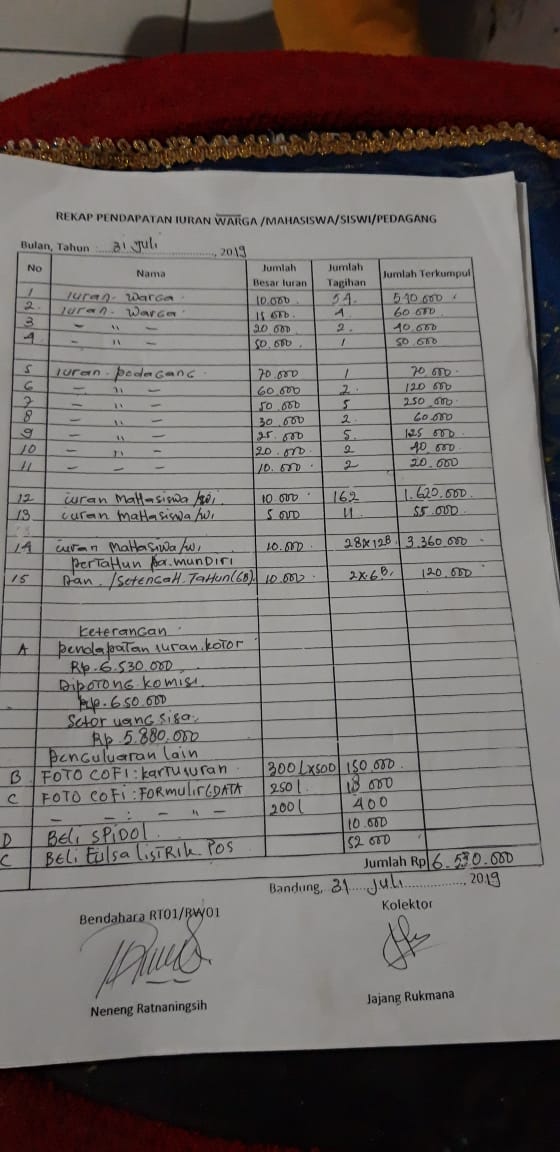 REKAP PENDAPATAN IURAN WARGA /MAHASISWA/SISWI/PEDAGANG
Bulan, Tahun : 31 juli, 2019
No Nama Jumlah Besar Iuran Jumlah Tagihan Jumlah Terkumpul
1 Iuran. Warga. 10.000 54. 540.000
2. Iuran. Warga. 15 000 4. 60 000
3 - " - 20 000 2. 40.000
4. - " - 50.000. 1 50.000
5 Iuran. pedagang. 70.000 1 70.000.
6 - " - 60.000 2. 120 000
7 - " - 50.000 5 250.000.
8 - " - 30.000 2. 60.000
9 - " - 25.000 5. 125 000
10 - " - 20.000. 2 40.000
11 - - - 10.000 2 20.000
12 iuran Mahasiswa/wi, 10 000 162 1.620.000.
13 iuran mahasiswa/wi, 5 000 11 55.000.
14 iuran Mahasiswa/wi, 10.000. 28X12B 3.360.000
pertahun pa.mundiri
15 Dan. /Setengah. Tahun(6B). 10.000 2X.6B, 120.000
Keterangan
A pendapatan iuran.kotor
Rp.6.530.000
Dipotong komisi.
Rp.650.000
Setor uang sisa,
Rp 5.880.000
penguluaran lain
B FOTO COFI : kartu iuran 300LX500 150.000.
C FOTO COFI : FORMulir(DATA 250L 18 000
- - : - " - 200L 400
D Beli SPIDOL. 10.000
C Beli tulsa listrik pos 52 000
Jumlah Rp 6.530.000
Bandung, 31 juli, 2019
Bendahara RT01/RW01 Kolektor
Neneng Ratnaningsih Jajang Rukmana